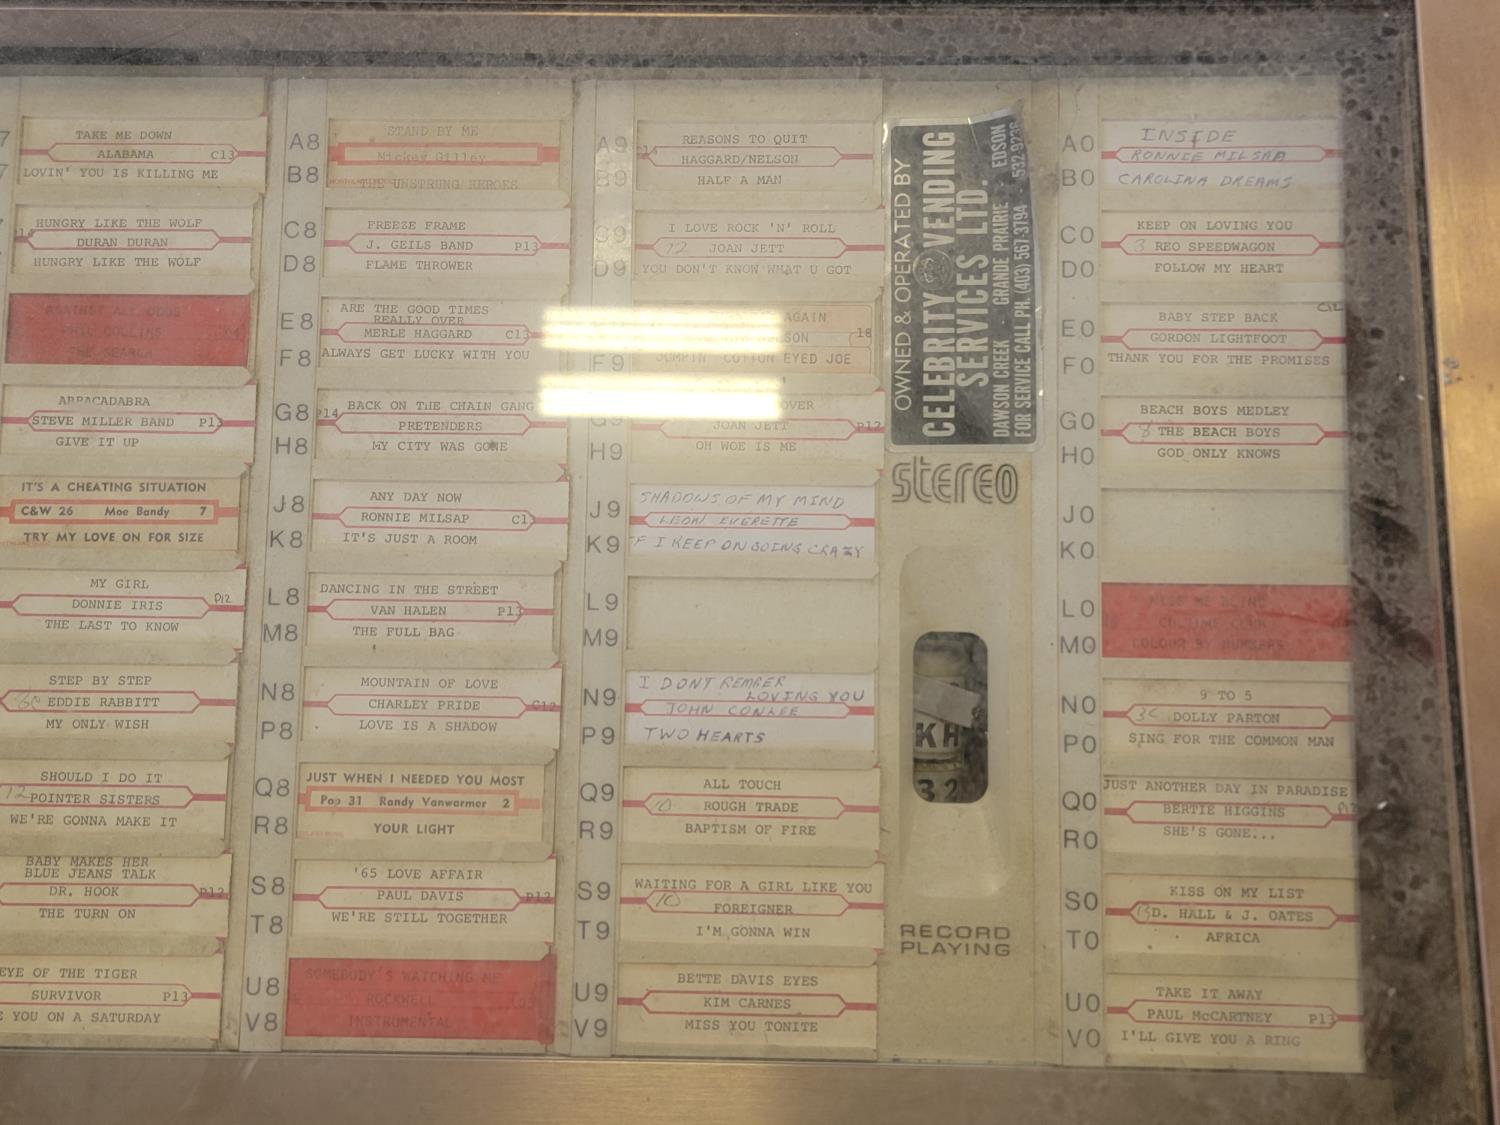 7
TAKE ME DOWN
ALABAMA C13
7
LOVIN' YOU IS KILLING ME
HUNGRY LIKE THE WOLF
DURAN DURAN
HUNGRY LIKE THE WOLF
AGAINST ALL ODDS
PHIL COLLINS
THE SEARCH
ABRACADABRA
STEVE MILLER BAND P13
GIVE IT UP
IT'S A CHEATING SITUATION
C&W 26 Moe Bandy 7
TRY MY LOVE ON FOR SIZE
MY GIRL
DONNIE IRIS P12
THE LAST TO KNOW
STEP BY STEP
EDDIE RABBITT
MY ONLY WISH
SHOULD I DO IT
12 POINTER SISTERS
WE'RE GONNA MAKE IT
BABY MAKES HER
BLUE JEANS TALK
DR. HOOK P12
THE TURN ON
EYE OF THE TIGER
SURVIVOR P13
E YOU ON A SATURDAY
A8
STAND BY ME
Mickey Gilley
B8
THE UNSTRUNG HEROES
C8
FREEZE FRAME
J. GEILS BAND P13
D8
FLAME THROWER
E8
ARE THE GOOD TIMES
REALLY OVER
MERLE HAGGARD C13
F8
ALWAYS GET LUCKY WITH YOU
G8
BACK ON THE CHAIN GANG
P14 PRETENDERS
H8
MY CITY WAS GONE
J8
ANY DAY NOW
RONNIE MILSAP
K8
IT'S JUST A ROOM
L8
DANCING IN THE STREET
VAN HALEN P13
M8
THE FULL BAG
N8
MOUNTAIN OF LOVE
CHARLEY PRIDE C12
P8
LOVE IS A SHADOW
Q8
JUST WHEN I NEEDED YOU MOST
Pop 31 Randy Vanwarmer 2
R8
YOUR LIGHT
S8
'65 LOVE AFFAIR
PAUL DAVIS P12
T8
WE'RE STILL TOGETHER
U8
SOMEBODY'S WATCHING ME
ROCKWELL
V8
INSTRUMENTAL
A9
REASONS TO QUIT
HAGGARD/NELSON
B9
HALF A MAN
C9
I LOVE ROCK 'N' ROLL
12 JOAN JETT
D9
YOU DON'T KNOW WHAT U GOT
AGAIN
18
F9
JUMPIN' COTTON EYED JOE
G9
OVER
JOAN JETT P12
H9
OH WOE IS ME
J9
SHADOWS OF MY MIND
LEON EVERETTE
K9
IF I KEEP ON GOING CRAZY
L9
M9
N9
I DONT REMBER
LOVING YOU
JOHN CONLEE
P9
TWO HEARTS
Q9
ALL TOUCH
10 ROUGH TRADE
R9
BAPTISM OF FIRE
S9
WAITING FOR A GIRL LIKE YOU
10 FOREIGNER
T9
I'M GONNA WIN
U9
BETTE DAVIS EYES
KIM CARNES
V9
MISS YOU TONITE
OWNED & OPERATED BY
CELEBRITY VENDING
SERVICES LTD.
DAWSON CREEK GRANDE PRAIRIE - EDSON
FOR SERVICE CALL PH. (403) 567-3794
stereo
KH
32
RECORD
PLAYING
A0
INSIDE
RONNIE MILSAP
B0
CAROLINA DREAMS
C0
KEEP ON LOVING YOU
3 REO SPEEDWAGON
D0
FOLLOW MY HEART
C12
E0
BABY STEP BACK
GORDON LIGHTFOOT
F0
THANK YOU FOR THE PROMISES
G0
BEACH BOYS MEDLEY
8 THE BEACH BOYS
H0
GOD ONLY KNOWS
J0
K0
L0
M0
COLOUR BY NUMBERS
N0
9 TO 5
DOLLY PARTON
P0
SING FOR THE COMMON MAN
JUST ANOTHER DAY IN PARADISE
Q0
BERTIE HIGGINS
R0
SHE'S GONE...
S0
KISS ON MY LIST
D. HALL & J. OATES
T0
AFRICA
U0
TAKE IT AWAY
PAUL McCARTNEY P13
V0
I'LL GIVE YOU A RING